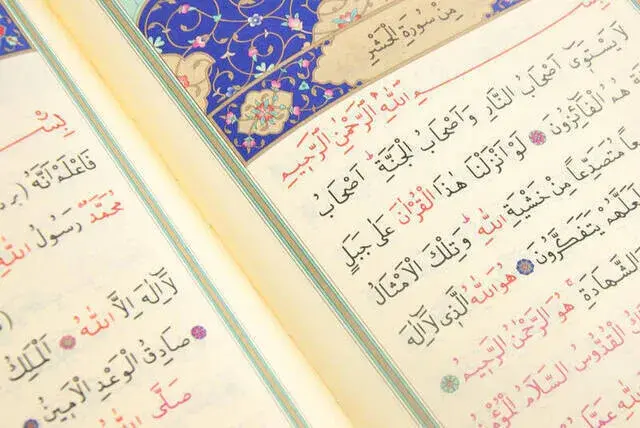 مِنْ سُورَةِ الْحَشْرِ
اللّٰهِ الرَّحْمٰنِ الرَّحِيمِ
لَا يَسْتَوِى اَصْحَابُ النَّارِ وَاَصْحَابُ الْجَنَّةِ اَصْحَابُ
هُمُ الْفَائِزُونَ لَوْ اَنْزَلْنَا هٰذَا الْقُرْاٰنَ عَلٰى جَبَلٍ
مُتَصَدِّعًا مِنْ خَشْيَةِ اللّٰهِ وَتِلْكَ الْاَمْثَالُ
يَتَفَكَّرُونَ هُوَ اللّٰهُ الَّذِى لَا اِلٰهَ
الشَّهَادَةِ هُوَ الرَّحْمٰنُ الرَّحِيمُ
الْقُدُّوسُ السَّلَامُ
فَاعْلَمْ اَنَّهُ
مُحَمَّدٌ رَسُولُ اللّٰهِ
لَا اِلٰهَ اِلَّا اللّٰهُ اَلْمَلِكُ
صَادِقُ الْوَعْدِ الْاَمِينُ
صَلَّى اللّٰهُ